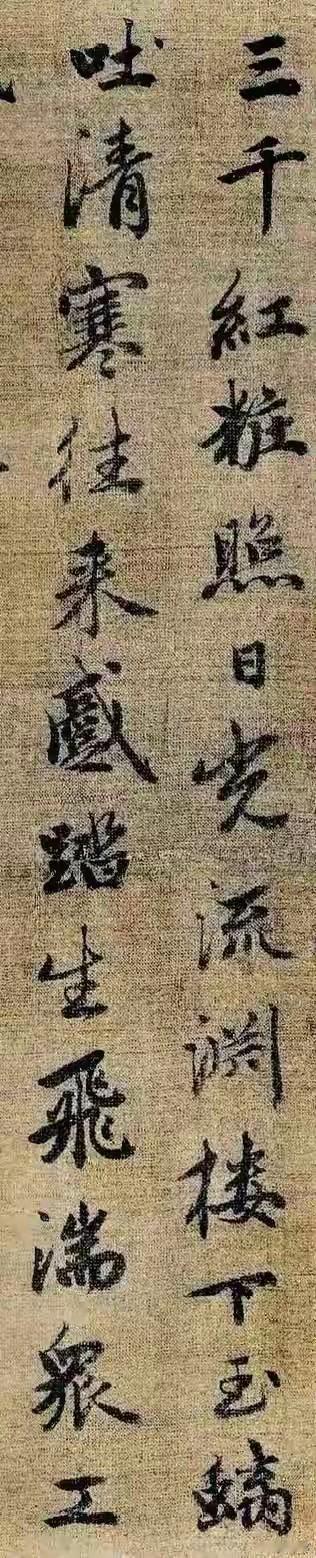 三千紅粧照日光流淵樓下玉螭
吐清寒往来蹙踏生飛湍衆工